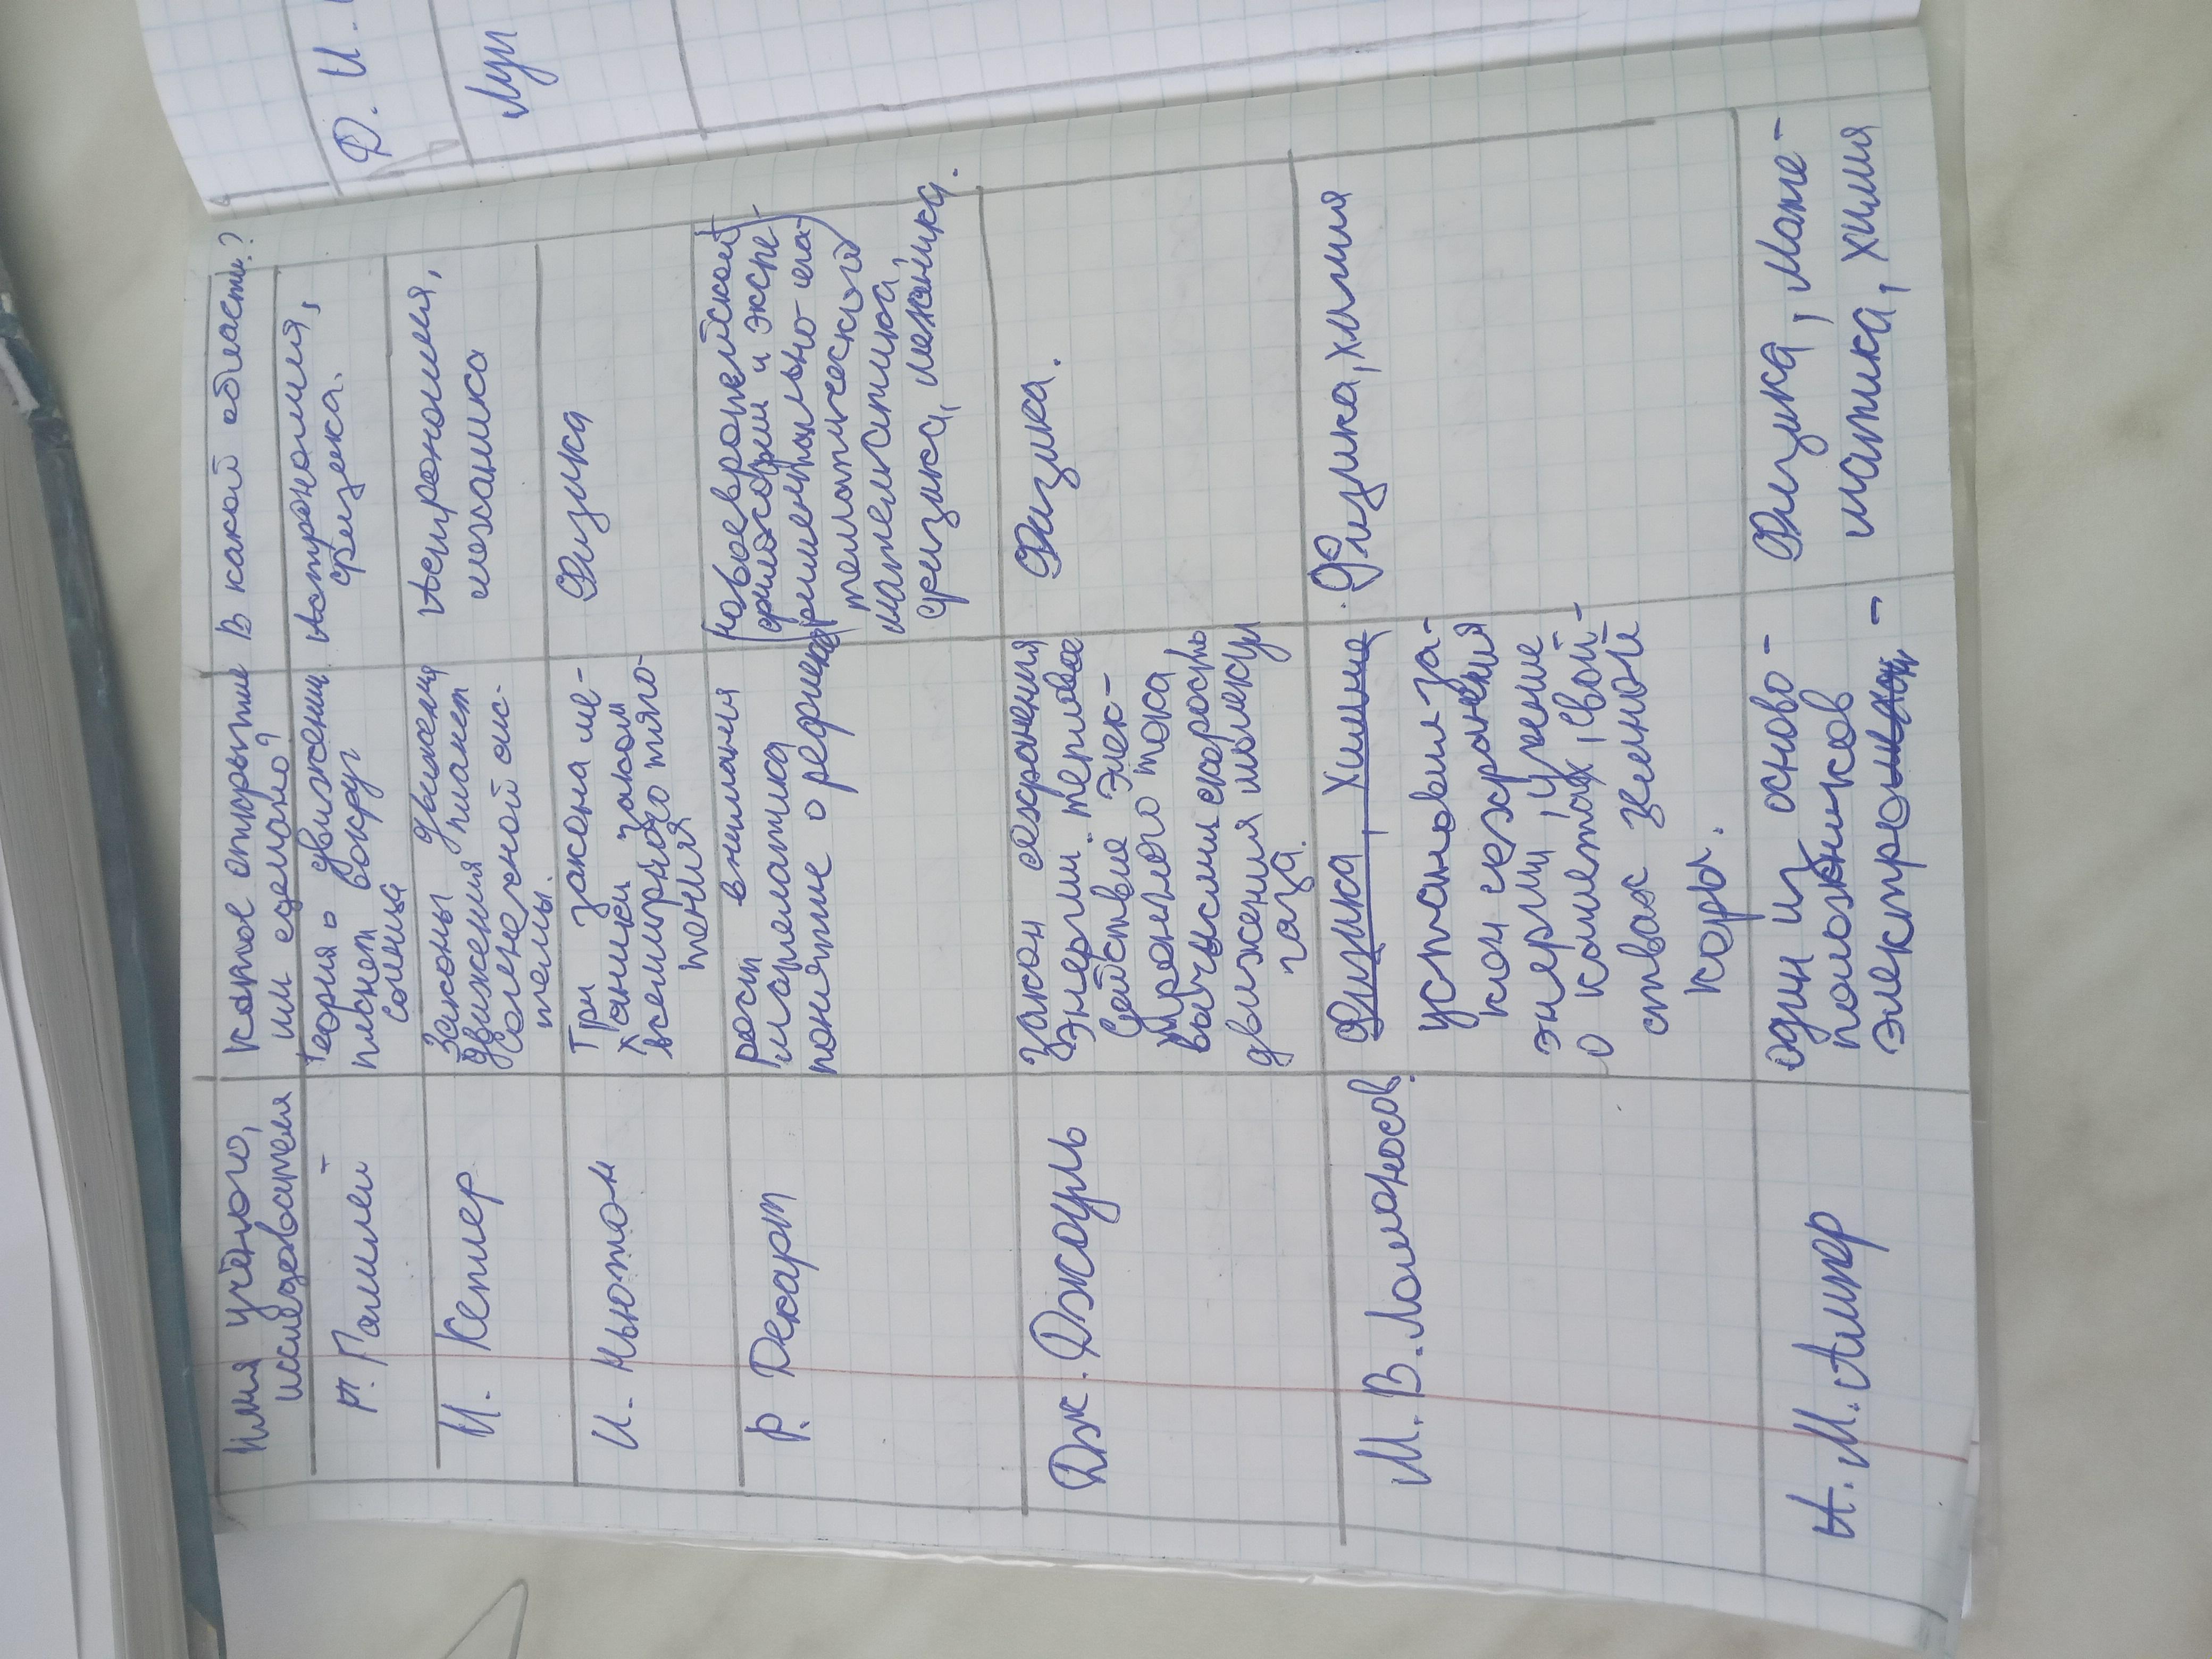 Имя учёного,
исследователя
Какое открытие
им сделано?
В какой области?
Г. Галилей
теория о движении
планет вокруг
солнца
Астрономия,
физека.
И. Кеплер
Законы движения
движения планет
Солнечной сис-
темы.
Астрономия,
механика
И. Ньютон
Три закона ме-
ханики закон
всемирного тяго-
тения
Физика
Р. Декарт
внимания
математика
понятие о
Новоевропейской
философии и экспе-
риментально-
математика,
физика, механика.
Дж. Джоуль
закон сохранения
энергии. тепловое
действие элек-
тронного тока
вычислил скорость
движения молекул
газа.
Физика.
М. В. Ломоносов.
Физика, химия
установил за-
кон сохранения
энергии, учение
о кометах, свой-
ствах земной
коры.
Физика, химия
А. М. Ампер
один из осново-
положников
электро
Физика, Мате-
матика, химия
Д. И.
Луи